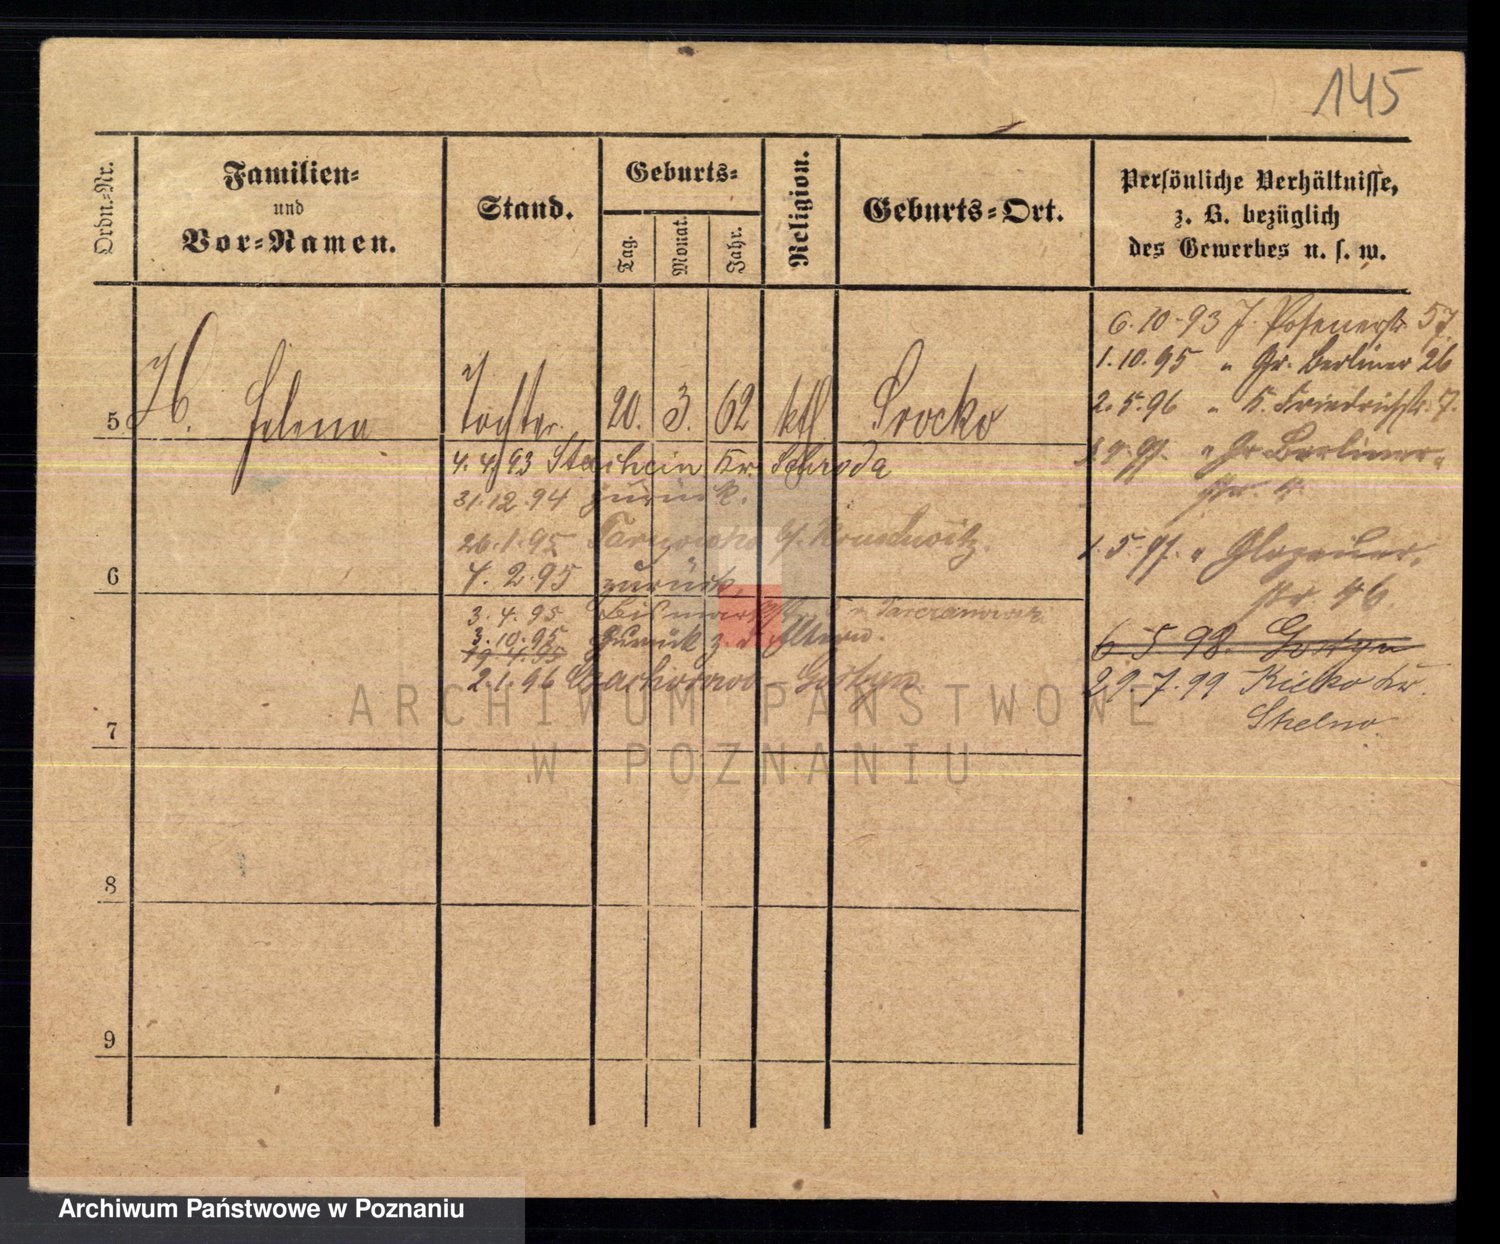 145
Ordn.-Nr.
Familien-
und
Vor-Namen.
Stand.
Geburts-
Tag.
Monat.
Jahr.
Religion.
Geburts-Ort.
Persönliche Verhältnisse,
z. B. bezüglich
des Gewerbes u. s. w.
5
H. Helena
Tochter
20. 3. 62
kth
Srocko
4. 4. 93 Kr. Schroda
31.12.94 zurück.
26.1.95
4. 2. 95 zurück.
3. 4. 95
3. 10. 95 zurück z. d. Eltern.
2.1.96
6
7
8
9
6.10.93 J. Posenerstr 57
1.10.95 " Gr. Berliner 26
2.5.96 " K. Friedrichstr. 7.
" Gr Berliner-
1. 5. 97. "
str 46.
6 5 98. Gostyn
29.7.99 Kr.
Strelno
ARCHIWUM PAŃSTWOWE
W POZNANIU
Archiwum Państwowe w Poznaniu